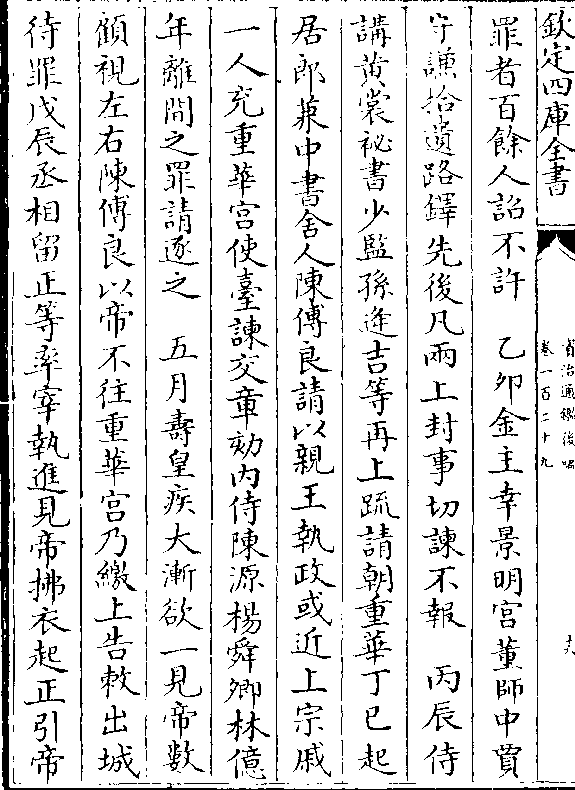 欽定四庫全書
資治通鑑後編
卷一百二十九
十九
罪者百餘人詔不許　乙卯金主幸景明宮董師中賈
守謙拾遺路鐸先後凡兩上封事切諫不報　丙辰侍
講黄裳祕書少監孫逢吉等再上疏請朝重華丁巳起
居郎兼中書舍人陳傅良請以親王執政或近上宗戚
一人充重華宮使臺諫交章劾内侍陳源楊舜卿林億
年離間之罪請逐之　五月壽皇疾大漸欲一見帝數
顧視左右陳傅良以帝不往重華宮乃繳上告敕出城
待罪戊辰丞相留正等率宰執進見帝拂衣起正引帝